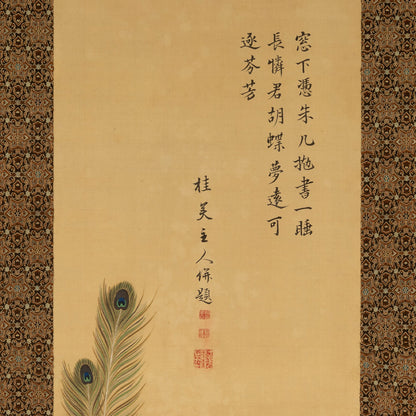 窓下憑朱几抛書一睡
長憐君胡蝶夢遠可
逐芬芳
桂美主人併題